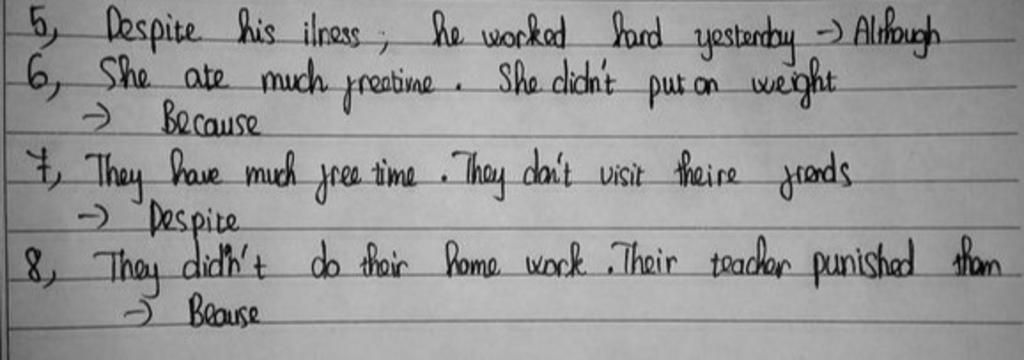 5, Despite his ilness, he worked hard yesterday -> Although
6, She ate much freetime. She didn't put on weight
-> Because
7, They have much free time. They don't visit theire frends
-> Despite
8, They didn't do their home work. Their teacher punished them
-> Beause